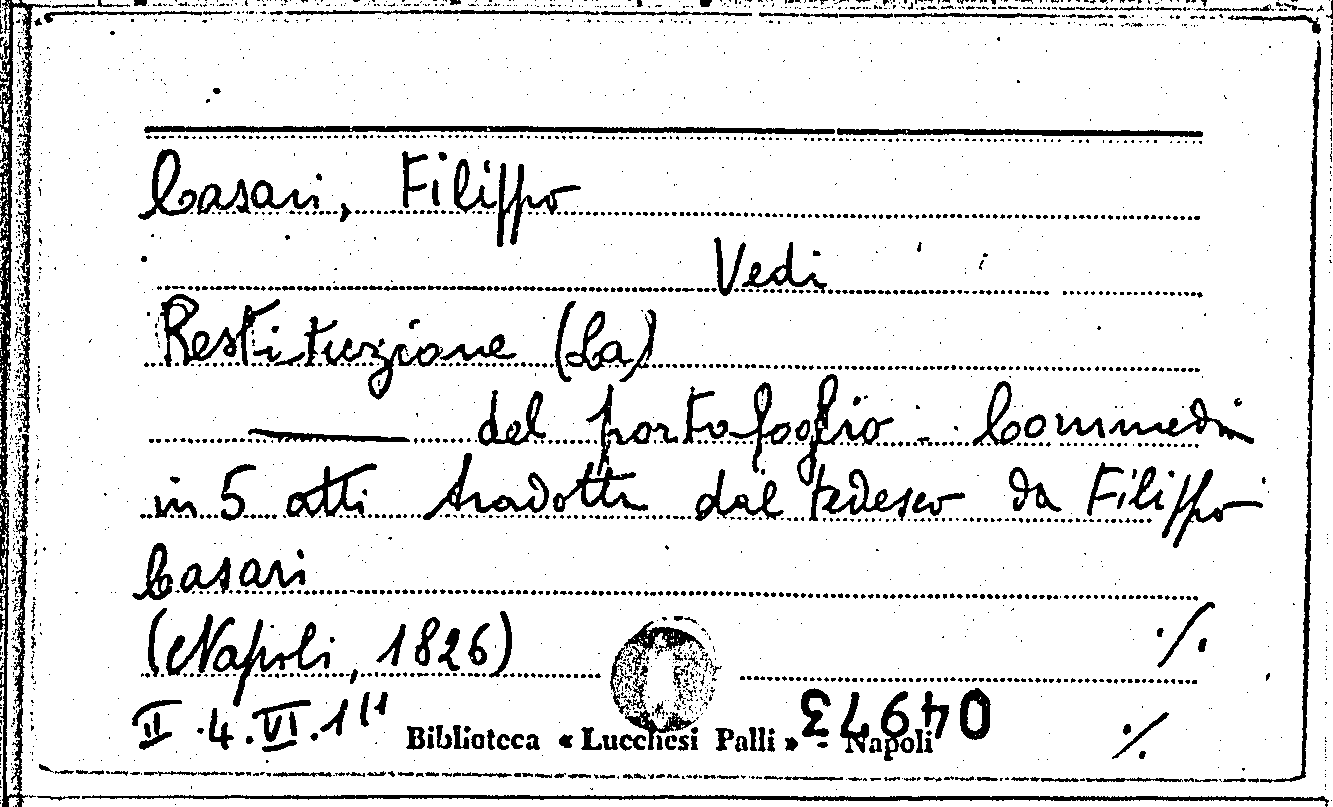 Casari, Filippo
Vedi
Restituzione (La)
—— del portafoglio. Commedia
in 5 atti tradotta dal tedesco da Filippo
Casari
(Napoli, 1826) ./.
II.4.VI.1(1
04973
Biblioteca « Lucchesi Palli » - Napoli ./.